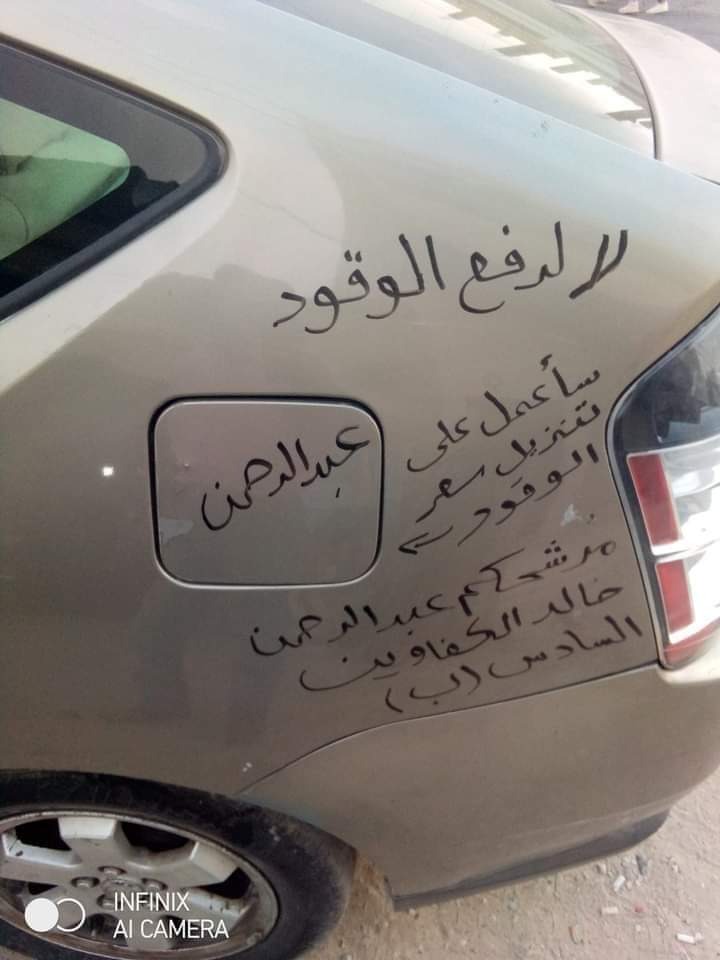 لا لدفع الوقود
سأعمل على
تنزيل سعر
الوقود ←
عبدالرحمن
مرشحكم عبدالرحمن
خالد الكفاوين
السادس (ب)
INFINIX
AI CAMERA